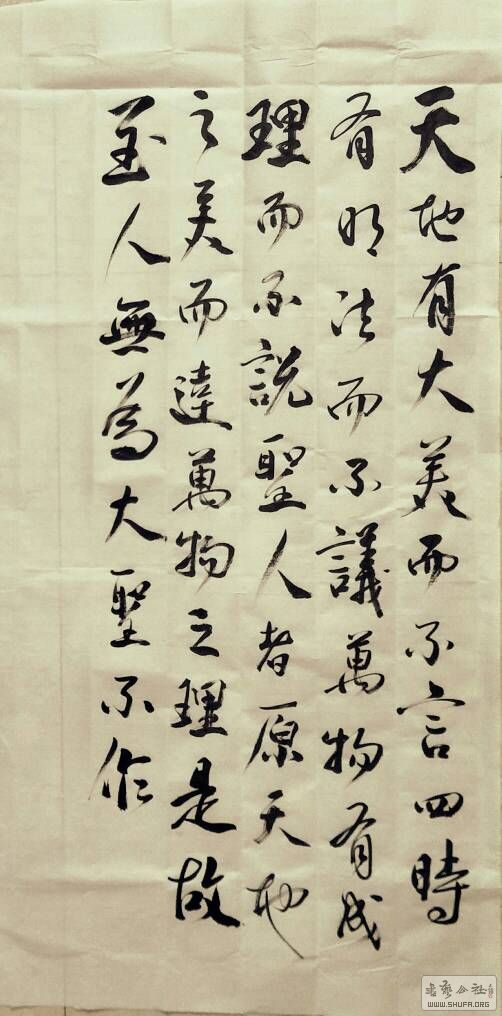 天地有大美而不言四時
有明法而不議萬物有成
理而不說聖人者原天地
之美而達萬物之理是故
至人無為大聖不作
書藝公社
WWW.SHUFA.ORG